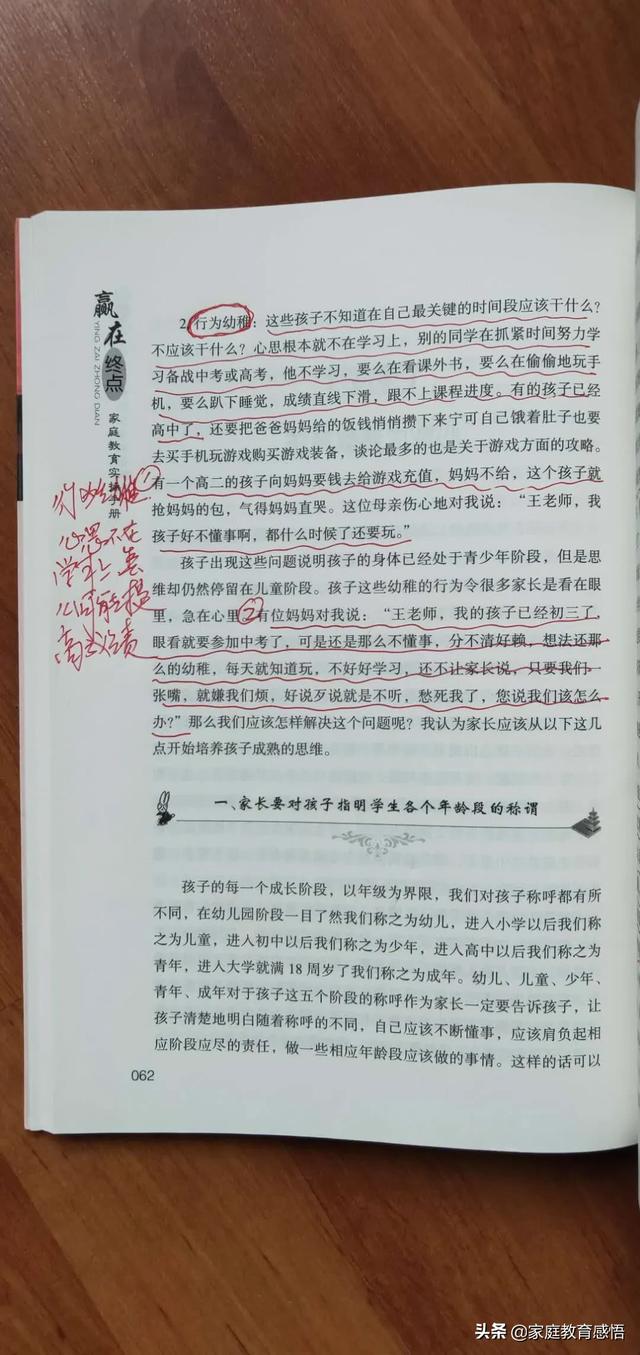 赢在终点
YING ZAI ZHONG DIAN
家庭教育实操手册
2.行为幼稚：这些孩子不知道在自己最关键的时间段应该干什么？
不应该干什么？心思根本就不在学习上，别的同学在抓紧时间努力学
习备战中考或高考，他不学习，要么在看课外书，要么在偷偷地玩手
机，要么趴下睡觉，成绩直线下滑，跟不上课程进度。有的孩子已经
高中了，还要把爸爸妈妈给的饭钱悄悄攒下来宁可自己饿着肚子也要
去买手机玩游戏购买游戏装备，谈论最多的也是关于游戏方面的攻略。
有一个高二的孩子向妈妈要钱去给游戏充值，妈妈不给，这个孩子就
抢妈妈的包，气得妈妈直哭。这位母亲伤心地对我说：“王老师，我
孩子好不懂事啊，都什么时候了还要玩。”
①
心思不在
学习上
孩子出现这些问题说明孩子的身体已经处于青少年阶段，但是思
维却仍然停留在儿童阶段。孩子这些幼稚的行为令很多家长是看在眼
里，急在心里②有位妈妈对我说：“王老师，我的孩子已经初三了，
眼看就要参加中考了，可是还是那么不懂事，分不清好赖，想法还那
么的幼稚，每天就知道玩，不好好学习，还不让家长说，只要我们一
张嘴，就嫌我们烦，好说歹说就是不听，愁死我了，您说我们该怎么
办？”那么我们应该怎样解决这个问题呢？我认为家长应该从以下这几
点开始培养孩子成熟的思维。
一、家长要对孩子指明学生各个年龄段的称谓
孩子的每一个成长阶段，以年级为界限，我们对孩子称呼都有所
不同，在幼儿园阶段一目了然我们称之为幼儿，进入小学以后我们称
之为儿童，进入初中以后我们称之为少年，进入高中以后我们称之为
青年，进入大学就满 18 周岁了我们称之为成年。幼儿、儿童、少年、
青年、成年对于孩子这五个阶段的称呼作为家长一定要告诉孩子，让
孩子清楚地明白随着称呼的不同，自己应该不断懂事，应该肩负起相
应阶段应尽的责任，做一些相应年龄段应该做的事情。这样的话可以
062
头条 @家庭教育感悟